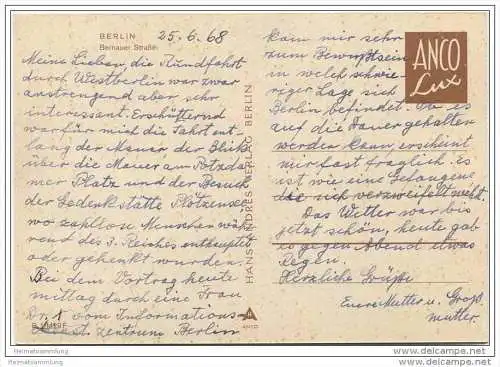 BERLIN
Bernauer Straße
25.6.68
Meine Lieben, die Rundfahrt
durch Westberlin war zwar
anstrengend aber sehr
interessant. Erschütternd
war für mich die Fahrt ent-
lang der Mauer der Blick
über die Mauer am Potzda-
mer Platz und der Besuch
der Gedenkstätte Plötzensee
wo zahllose Menschen wäh-
rend des 3. Reiches enthauptet
oder gehenkt wurden.
Bei dem Vortrag heute
mittag durch eine Frau
Dr. vom Informations-
zentrum Berlin
kam mir sehr
zum Bewußtsein
in welch schwie-
riger Lage sich
Berlin befindet. Ob es
auf die Dauer gehalten
werden kann, erscheint
mir fast fraglich. es
ist wie eine Gefangene
die sich verzweifelt wehrt.
Das Wetter war bis
jetzt schön, heute gab
es gegen Abend etwas
Regen.
Herzliche Grüße
Eure Mutter u. Groß-
mutter.
HANS ANDRES VERLAG BERLIN
ANCO
Lux